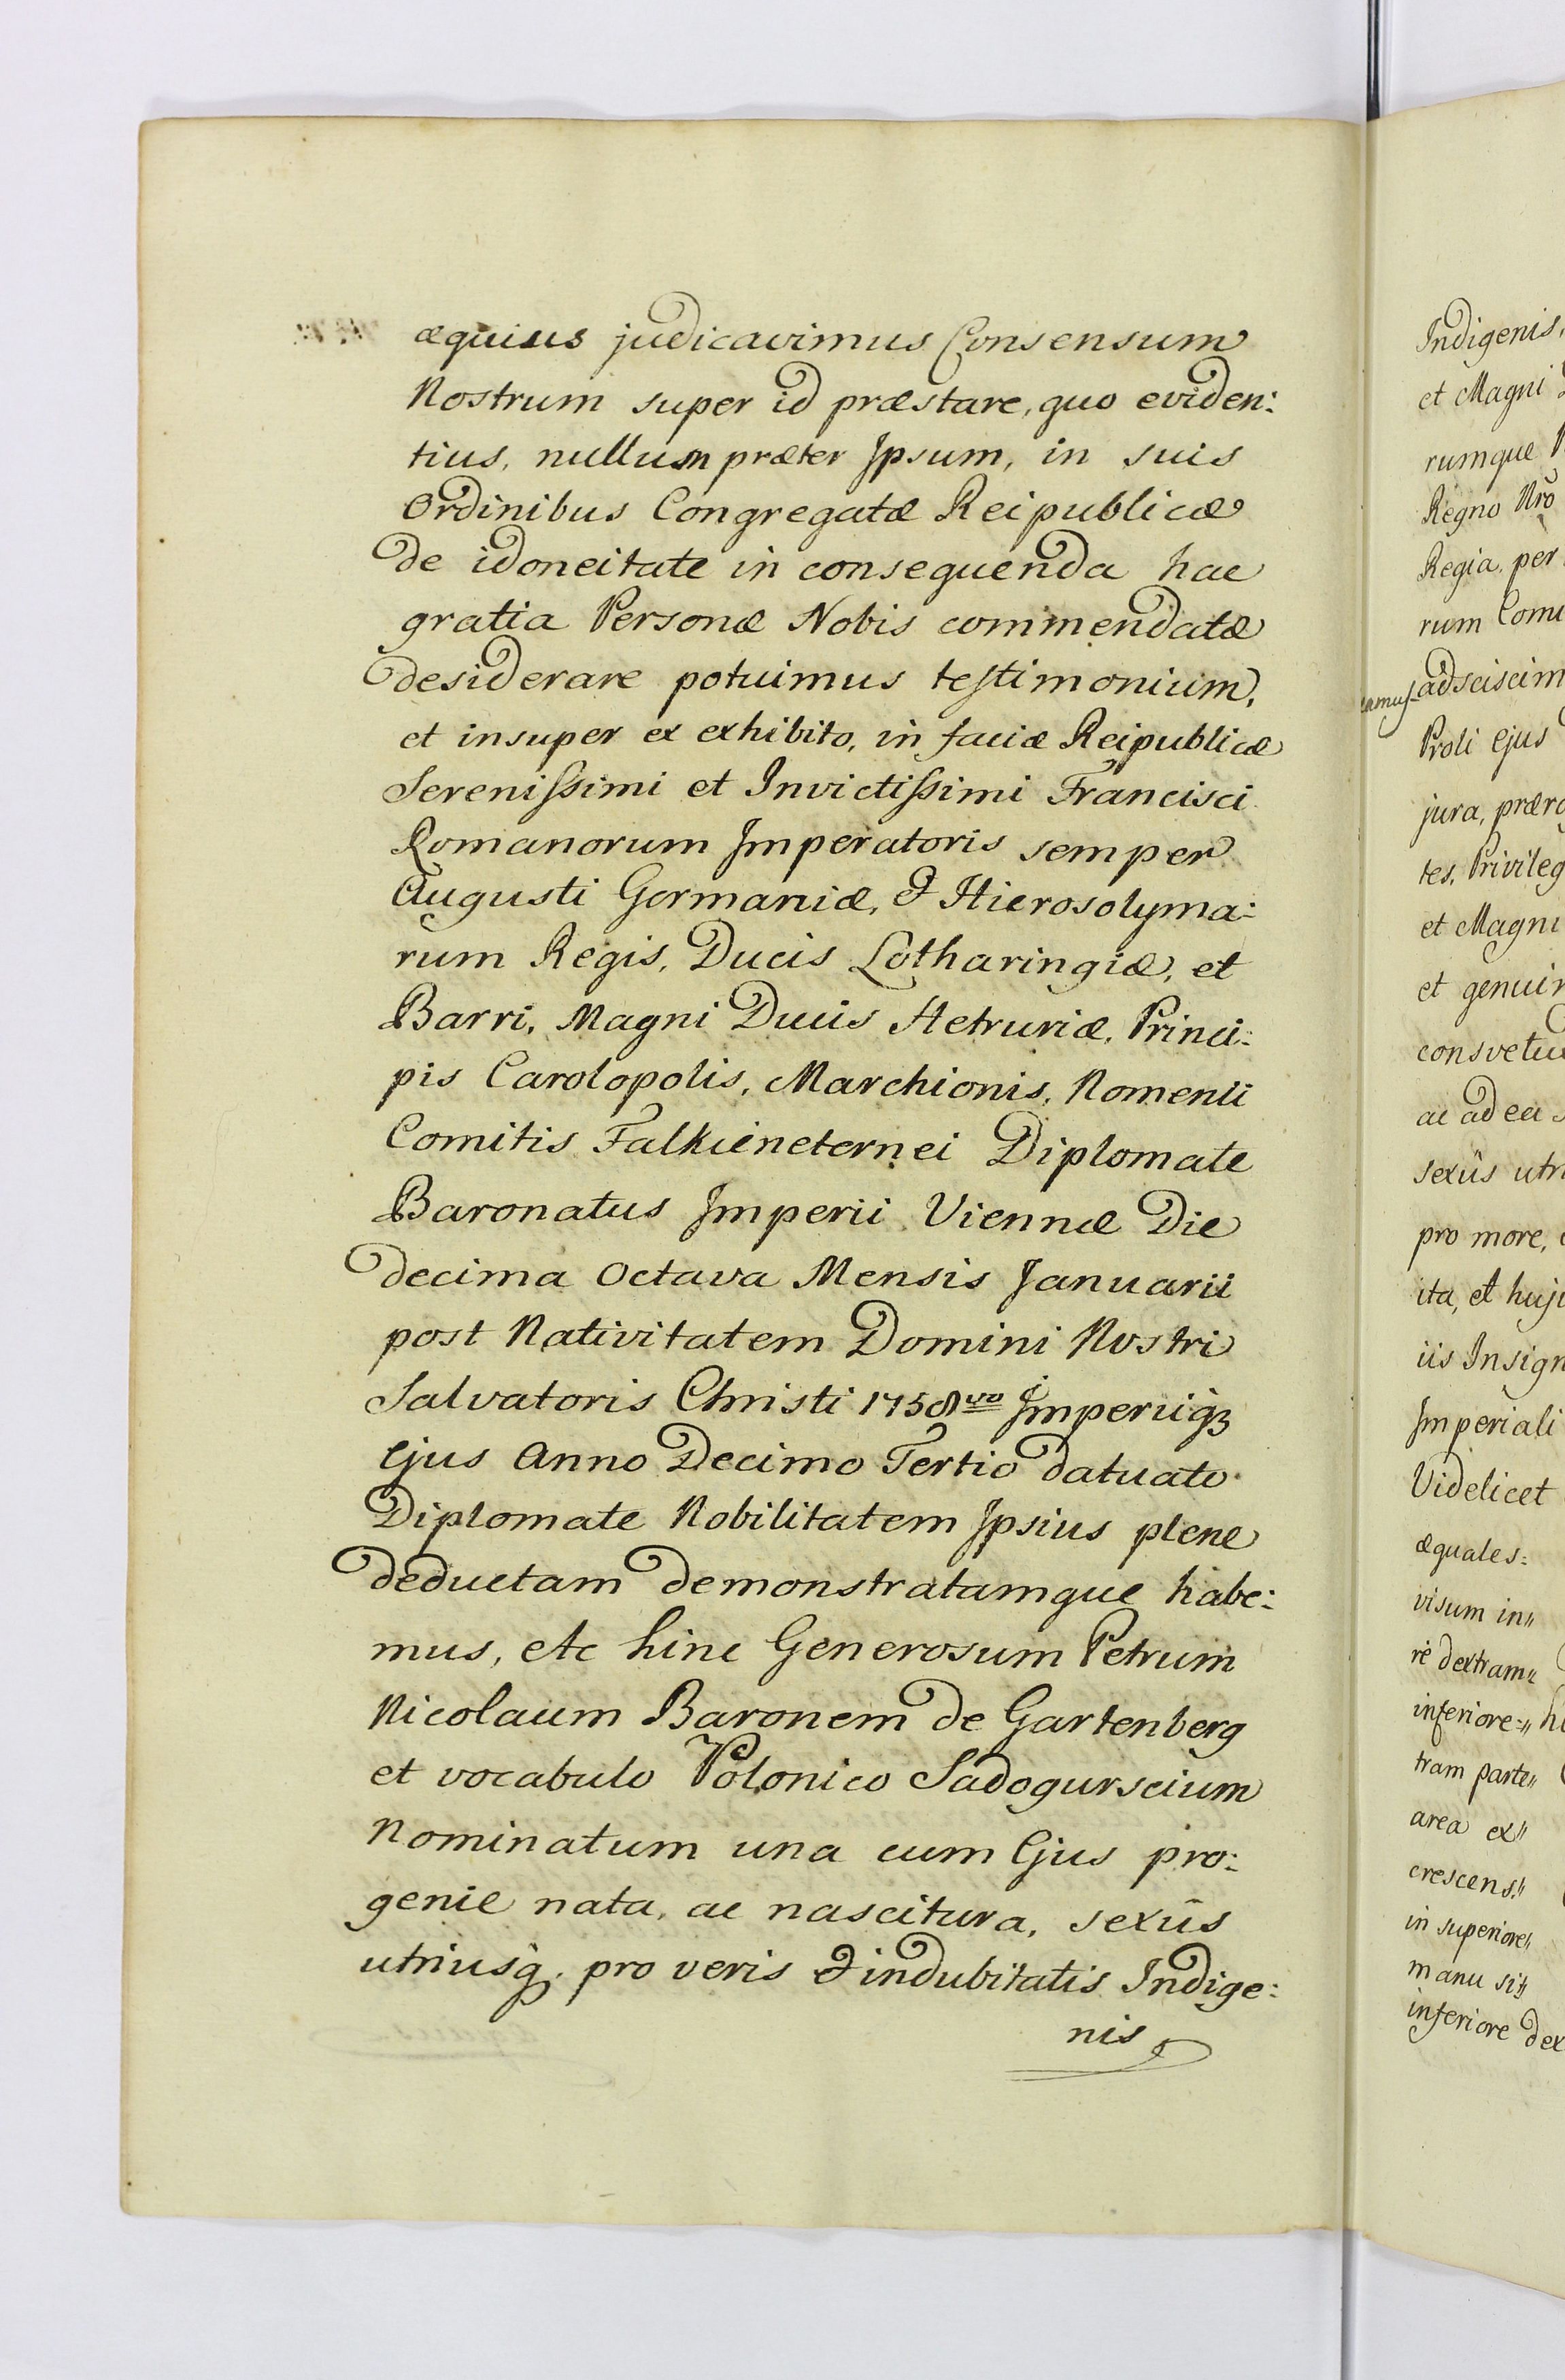 æquius judicavimus Consensum
Nostrum super id præstare, quo eviden:
tius, nullum præter Ipsum, in suis
Ordinibus Congregatæ Reipublicæ
de idoneitate in consequenda hac
gratia Personæ Nobis commendatæ
desiderare potuimus testimonium,
et insuper ex exhibito, in faciæ Reipublicæ
Serenissimi et Invictissimi Francisci
Romanorum Imperatoris semper
Augusti Germaniæ, & Hierosolyma:
rum Regis, Ducis Lotharingiæ, et
Barri, Magni Ducis Hetruriæ, Princi:
pis Carolopolis, Marchionis, Nomenii
Comitis Falkieneternei Diplomate
Baronatus Imperii Viennæ Die
decima Octava Mensis Januarii
post Nativitatem Domini Nostri
Salvatoris Christi 1758vo Imperiiq3
Ejus Anno Decimo Tertio datuato
Diplomate Nobilitatem Ipsius plene
deductam demonstratamque habe:
mus, etc hinc Generosum Petrum
Nicolaum Baronem de Gartenberg
et vocabulo Polonico Sadogurscium
nominatum una cum Ejus pro:
genie nata, ac nascitura, sexûs
utriusq. pro veris & indubitatis Indige:
nis
Indigenis,
et Magni
rumque
Regno Nrõ
Regia, per
rum
adsciscim
Proli ejus
jura,
tes, Privileg
et Magni
et genuin
consvetu
ac ad ea
sexûs utri
pro more,
ita, et huj
iis Insign
Imperiali
Videlicet
æquales:
visum in"
re dextram"
inferiore="
tram parte"
area ex"
crescens"
in superiore"
manu si"
inferiore dex